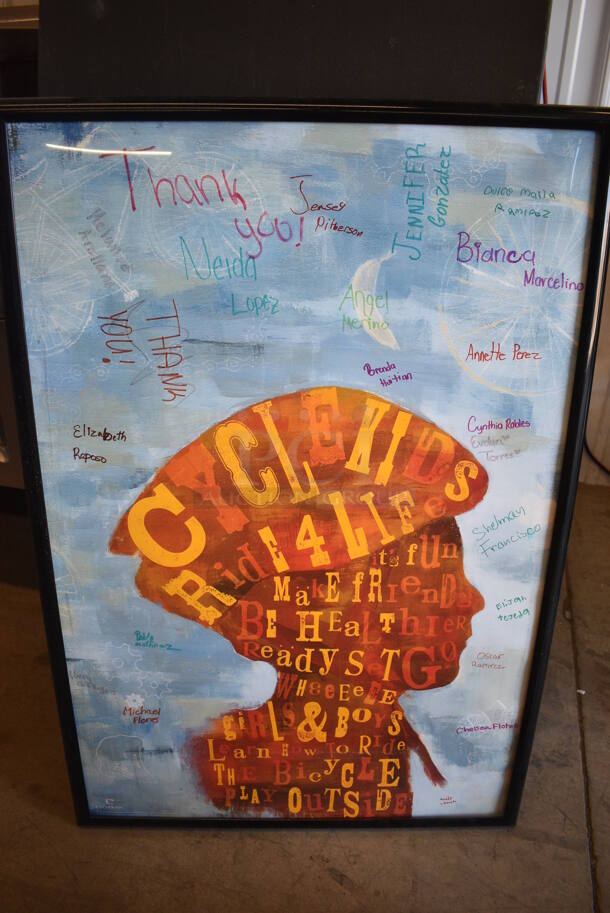 Thank
you!
Jensey
Pitherson
JENNIFER
Gonzalez
Dulce Maria
RAMIREZ
Melanie
Arellano
Neida
Lopez
Bianca
Marcelino
Angel
Merino
THANK
YOU!
Annette Perez
Brenda
Huitian
Elizabeth
Raposo
Cynthia Robles
Evelyn
Torres
CYCLEKIDS
Ride 4 LIFe
it's fUn
Shelman
Francisco
MakE fRIenDs
BE HEaLTHIER
Elijah
tejeda
ReadySETGO
Oscar
Ramirez
WHeeEeEE
Michael
Flores
giRLS & BOYS
Chelsea Flores
Learn How To Ride
THE BicyCLE
PLAY OUTSIDE